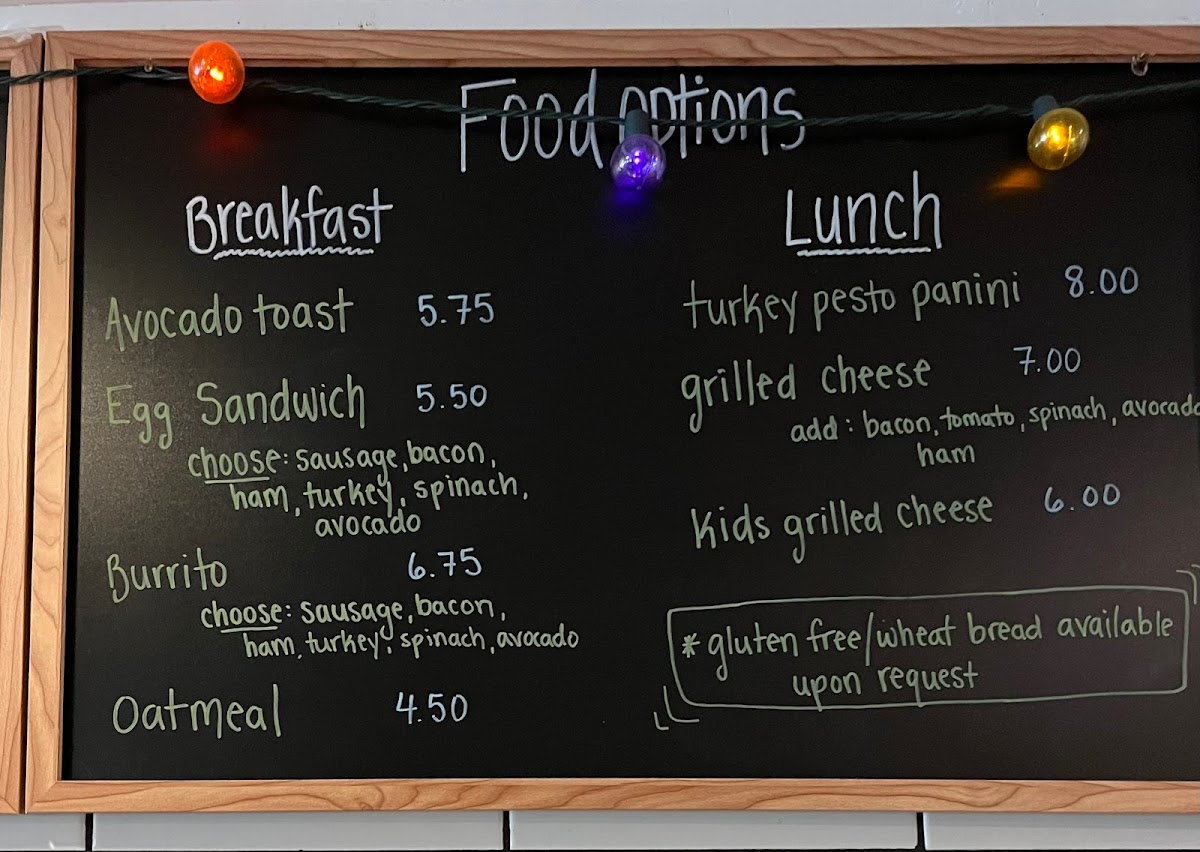 Food options
Breakfast
Avocado toast 5.75
Egg Sandwich 5.50
choose: sausage, bacon,
ham, turkey, spinach,
avocado
Burrito 6.75
choose: sausage, bacon,
ham, turkey, spinach, avocado
Oatmeal 4.50
Lunch
turkey pesto panini 8.00
grilled cheese 7.00
add: bacon, tomato, spinach, avocado
ham
kids grilled cheese 6.00
* gluten free/wheat bread available
upon request